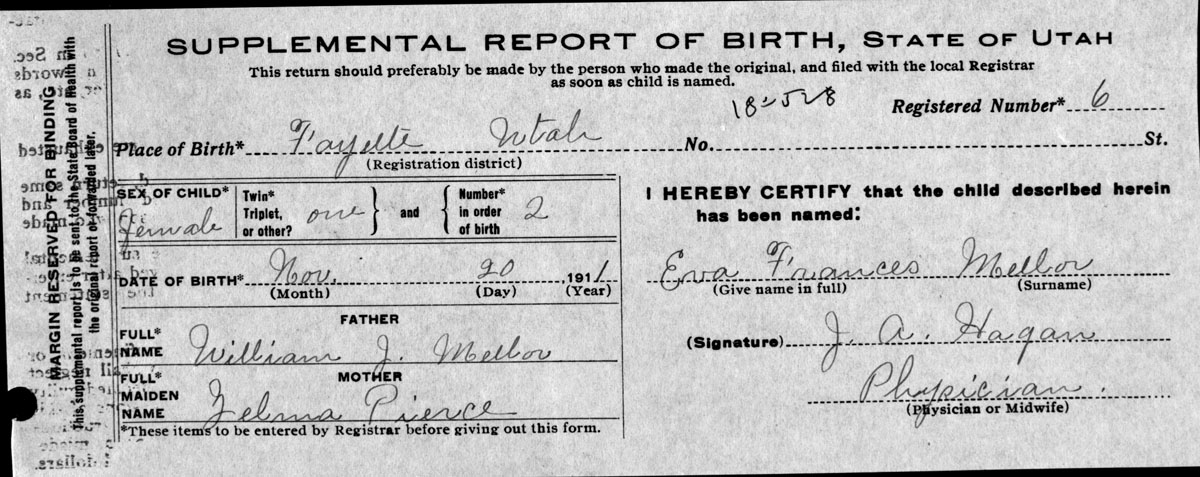 SUPPLEMENTAL REPORT OF BIRTH, STATE OF UTAH
This return should preferably be made by the person who made the original, and filed with the local Registrar
as soon as child is named.
Registered Number* 6
Place of Birth* Fayette Utah No. St.
(Registration district)
SEX OF CHILD* Female
Twin* Triplet, or other? one } and { Number* in order of birth 2
DATE OF BIRTH* Nov. 20 1911
(Month) (Day) (Year)
FATHER
FULL* NAME William J. Mellor
MOTHER
FULL* MAIDEN NAME Zelma Pierce
*These items to be entered by Registrar before giving out this form.
I HEREBY CERTIFY that the child described herein
has been named:
Eva Frances Mellor
(Give name in full) (Surname)
(Signature) J. A. Hagan
Physician.
(Physician or Midwife)
MARGIN RESERVED FOR BINDING
This supplemental report is to be sent to the State Board of Health with
the original report or forwarded later.